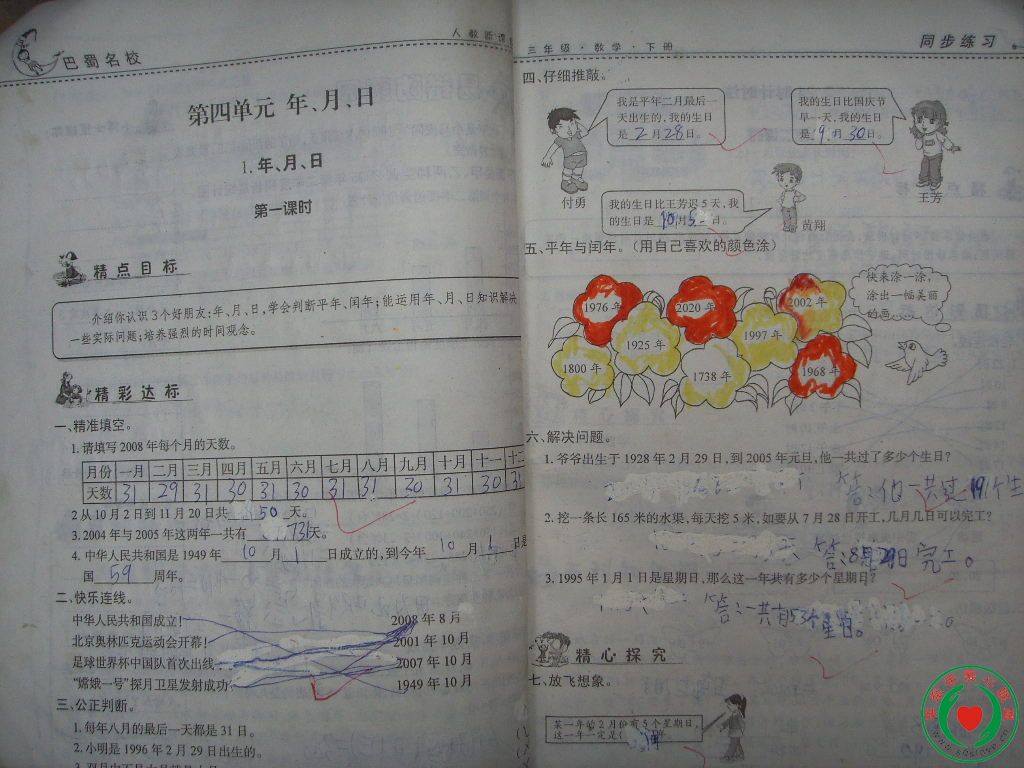 巴蜀名校
人教新课
第四单元 年、月、日
1.年、月、日
第一课时
精点目标
介绍你认识3个好朋友:年、月、日,学会判断平年、闰年;能运用年、月、日知识解决
一些实际问题;培养强烈的时间观念。
精彩达标
一、精准填空。
1.请填写2008年每个月的天数。
月份 一月 二月 三月 四月 五月 六月 七月 八月 九月 十月 十一 十二
天数 31 29 31 30 31 30 31 31 30 31 30 31
2从10月2日到11月20日共 50 天。
3.2004年与2005年这两年一共有 731天。
4.中华人民共和国是1949年 10 月 1 日成立的,到今年 10 月 1 日是
国 59 周年。
二、快乐连线。
中华人民共和国成立! 2008年8月
北京奥林匹克运动会开幕! 2001年10月
足球世界杯中国队首次出线 2007年10月
“嫦娥一号”探月卫星发射成功 1949年10月
三、公正判断。
1.每年八月的最后一天都是31日。
2.小明是1996年2月29日出生的。
三年级·数学·下册
同步练习
四、仔细推敲。
我是平年二月最后一
天出生的,我的生日
是 2 月 28 日。
我的生日比国庆节
早一天,我的生日
是 9 月 30 日。
付勇
王芳
我的生日比王芳迟5天,我
的生日是 10 月 5 日。
黄翔
五、平年与闰年。(用自己喜欢的颜色涂)
1976年
2020年
2002年
1925年
1997年
1800年
1738年
1968年
快来涂一涂,
涂出一幅美丽
的画
六、解决问题。
1.爷爷出生于1928年2月29日,到2005年元旦,他一共过了多少个生日?
答:他一共过19个生
2.挖一条长165米的水渠,每天挖5米,如要从7月28日开工,几月几日可以完工?
天 答:8月29日完工。
3.1995年1月1日是星期日,那么这一年共有多少个星期日?
答:一共有53个星期日。
精心探究
七、放飞想象。
某一年的2月份有5个星期日,
这一年一定是( 年。